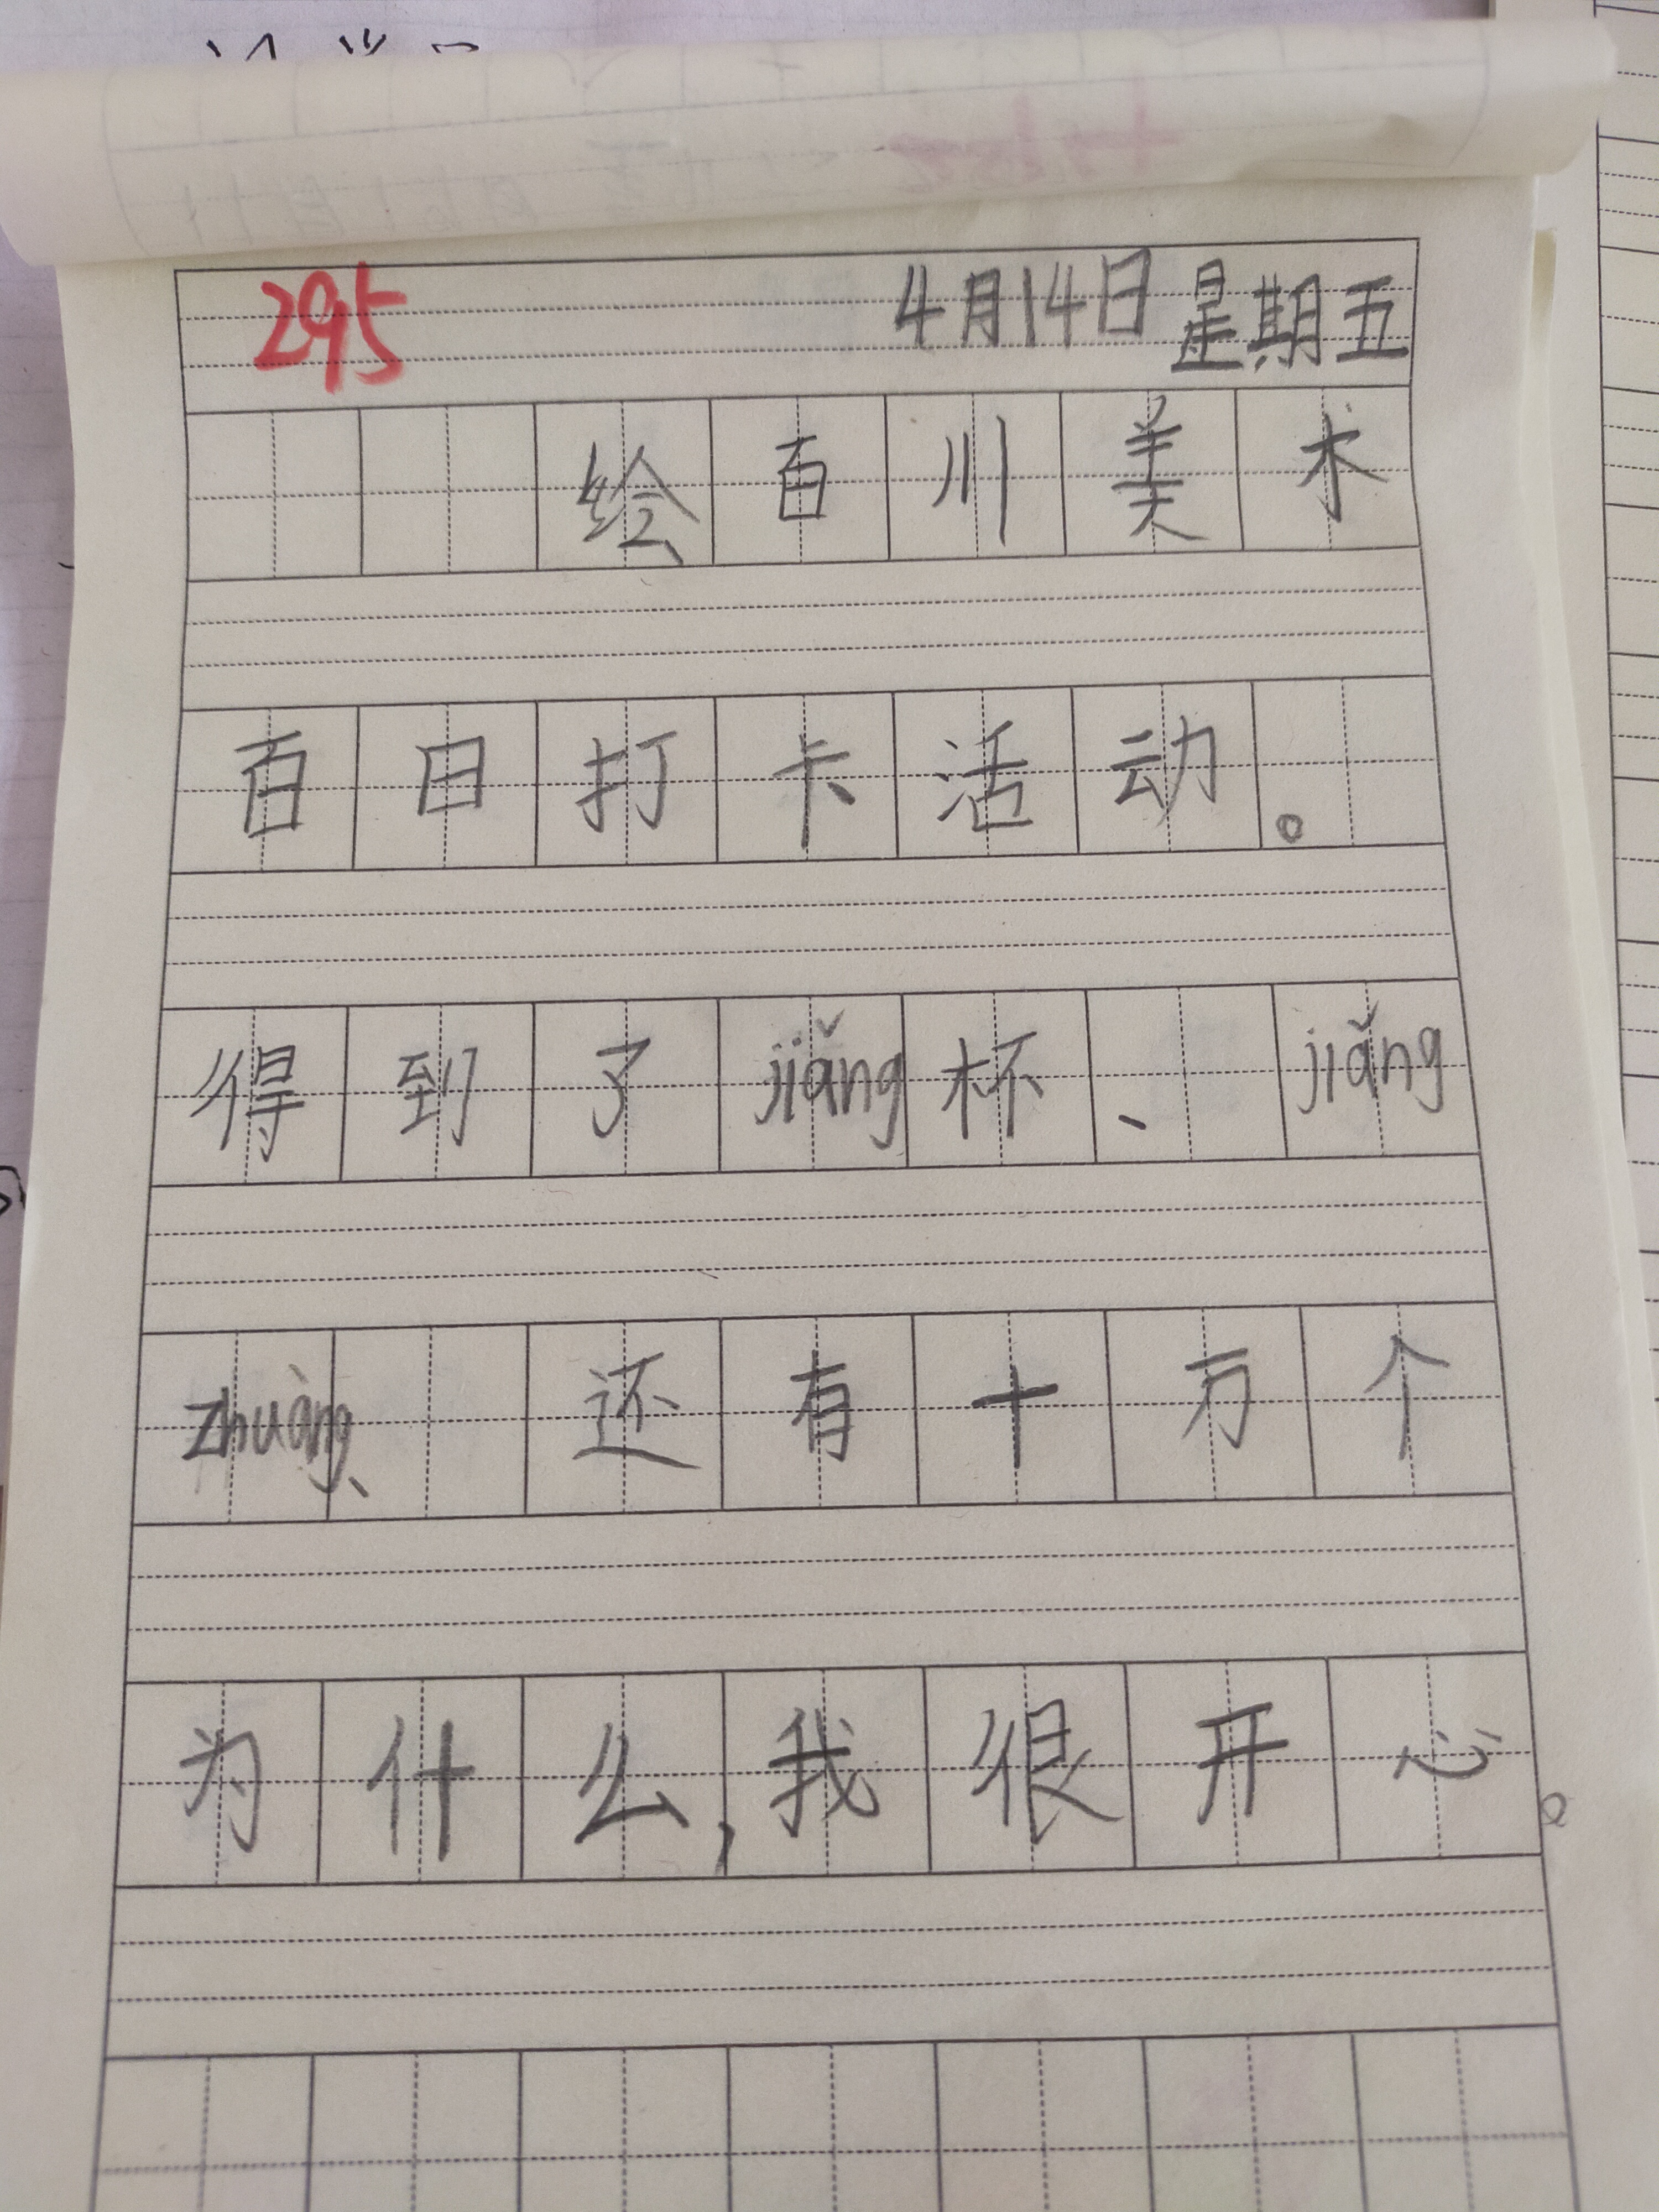 295 4月14日星期五
绘百川美术
百日打卡活动。
得到了jiǎng杯、jiǎng
zhuàng、还有十万个
为什么,我很开心。